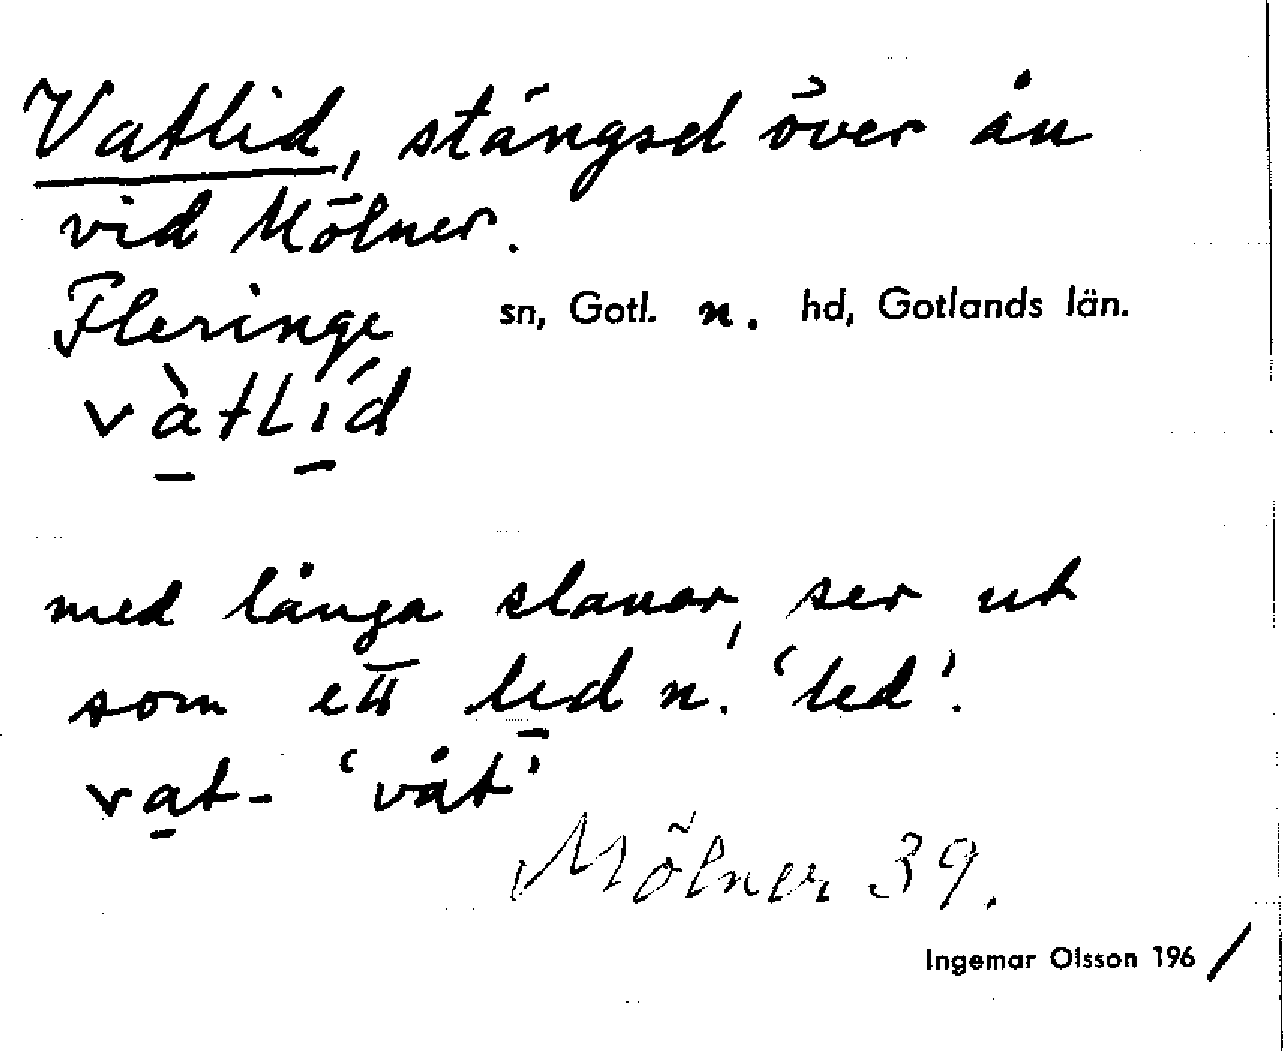 Vatlid, stängsel över ån
vid Mölner.
Fleringe sn, Gotl. n. hd, Gotlands län.
vàtlíd
med långa slanor, ser ut
som ett led n. 'led'.
vat- 'våt'
Mölner 39.
Ingemar Olsson 196/